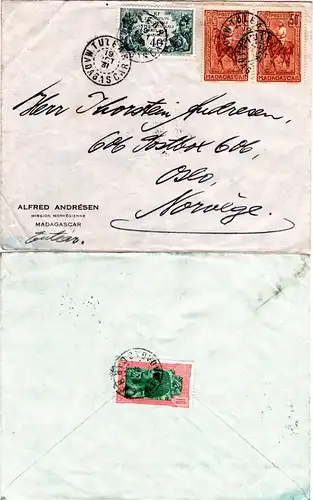 TULEAR
19
31
MADAGASCAR
40
50
MADAGASCAR
MADAGASCAR
Herr Thorstein Andresen,
606 Postbox 606,
Oslo,
Norvège.
ALFRED ANDRÉSEN
MISSION NORVÉGIENNE
MADAGASCAR
Tuléar.